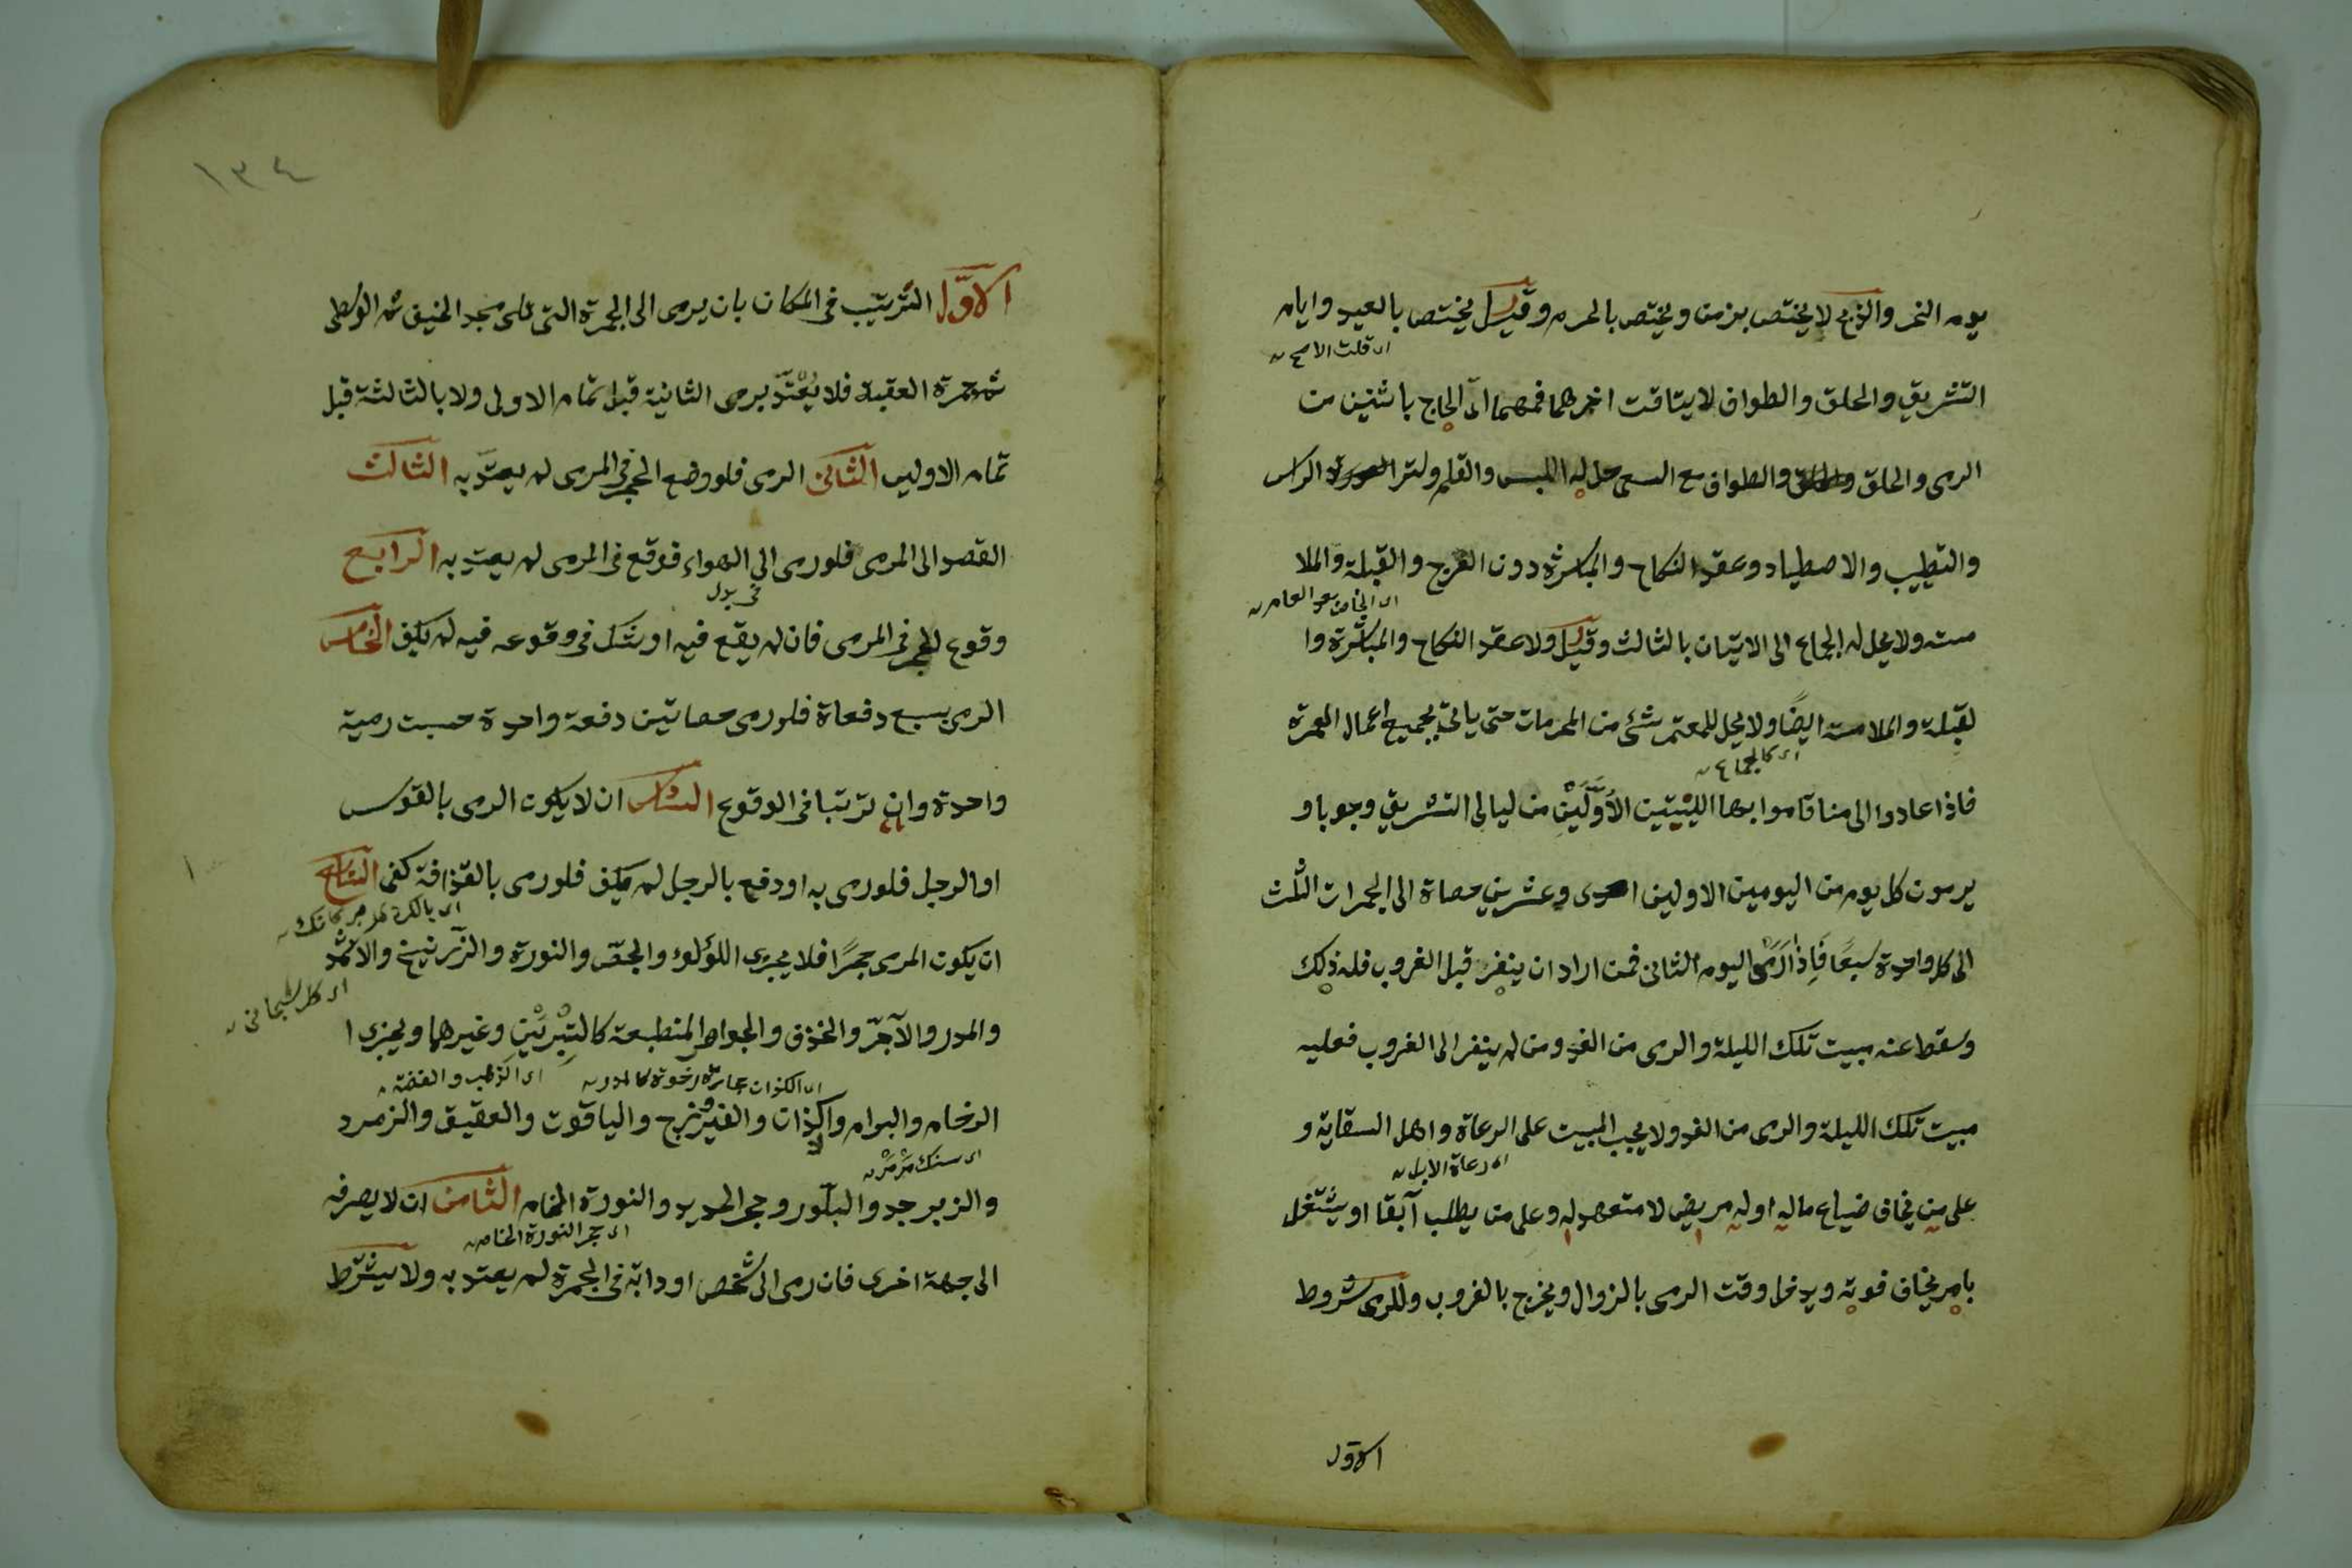 يوم النحر والذبح لا يختص بزمن ويختص بالحرم وقيل يختص بالعيد وايام
اى قلت الاصح
التشريق والحلق والطواف لا يتاقت اخرهما فمهما اتى الحاج باثنين من
الرمى والحلق والطواف مع السعى حل له اللبس والقلم وستر الراس
والتطييب والاصطياد وعقد النكاح والمباشرة دون الفرج والقبلة والملا
مسة ولا يحل له الجماع الى الاتيان بالثالث وقيل ولا عقد النكاح والمباشرة وا
لقبلة والملامسة ايضًا ولا يحل للمعتمر شئ من المحرمات حتى ياتى بجميع اعمال العمرة
اى كالجماع
فاذا عادوا الى منا قاموا بها الليلتين الأَوَّلَيْنِ من ليالى التشريق وجوبا و
يرمون كل يوم من اليومين الاولين احدى وعشرين حصاة الى الجمرات الثلث
الى كل واحدة سبعًا فَاِذا رَمَى اليوم الثانى فمن اراد ان ينفر قبل الغروب فله ذلك
وسقط عنه مبيت تلك الليلة والرمى من الغد ومن لم ينفر الى الغروب فعليه
مبيت تلك الليلة والرمى من الغد ولا يجب المبيت على الرعاة واهل السقاية و
اى رعاة الابل
على من يخاف ضياع ماله او له مريض لا متعهد له وعلى من يطلب آبقا او يشتغل
بامر يخاف فوته ويدخل وقت الرمى بالزوال ويخرج بالغروب وللرمى شروط
الاول
١٣٤
الاوّل الترتيب فى المكان بان يرمى الى الجمرة التى تلى مسجد الخيف ثم الوسطى
ثم جمرة العقبة فلا يُعْتَدّ برمى الثانية قبل تمام الاولى ولا بالثالثة قبل
تمام الاوليين الثانى الرمى فلو وضع الحجر فى المرمى لم يعتدّ به الثالث
القصد الى المرمى فلو رمى الى الهواء فوقع فى المرمى لم يعتد به الرابع
وقوع الحجر فى المرمى فان لم يقع فيه او شك فى وقوعه فيه لم يكف الخامس
الرمى بسبع دفعاة فلو رمى حصاتين دفعة واحدة حسبت رمية
واحدة وان ترتبا فى الوقوع السادس ان لا يكون الرمى بالقوس
او الرجل فلو رمى به او دفع بالرجل لم يكف فلو رمى بالقذافة كفى السابع
ان يكون المرمى حجرًا فلا يجزى اللؤلؤ والجصّ والنورة والزرنيخ والاثمد
والمدر والآجرّ والخزف والجواهر المنطبعة كالتِبْرَيْنِ وغيرهما ويجزى ا
اى الكذان حجارة رخوة كالمدر
اى الذهب والفضة
الرخام والبرام والكذان والفيروزج والياقوت والعقيق والزمرد
اى سنك مَرْمَرْ
والزبرجد والبلّور وحجر الحديد والنورة الخام الثامن ان لا يصرفه
اى حجر النورة الخام
الى جهة اخرى فان رمى الى شخص او دابّة فى الجمرة لم يعتد به ولا يشترط